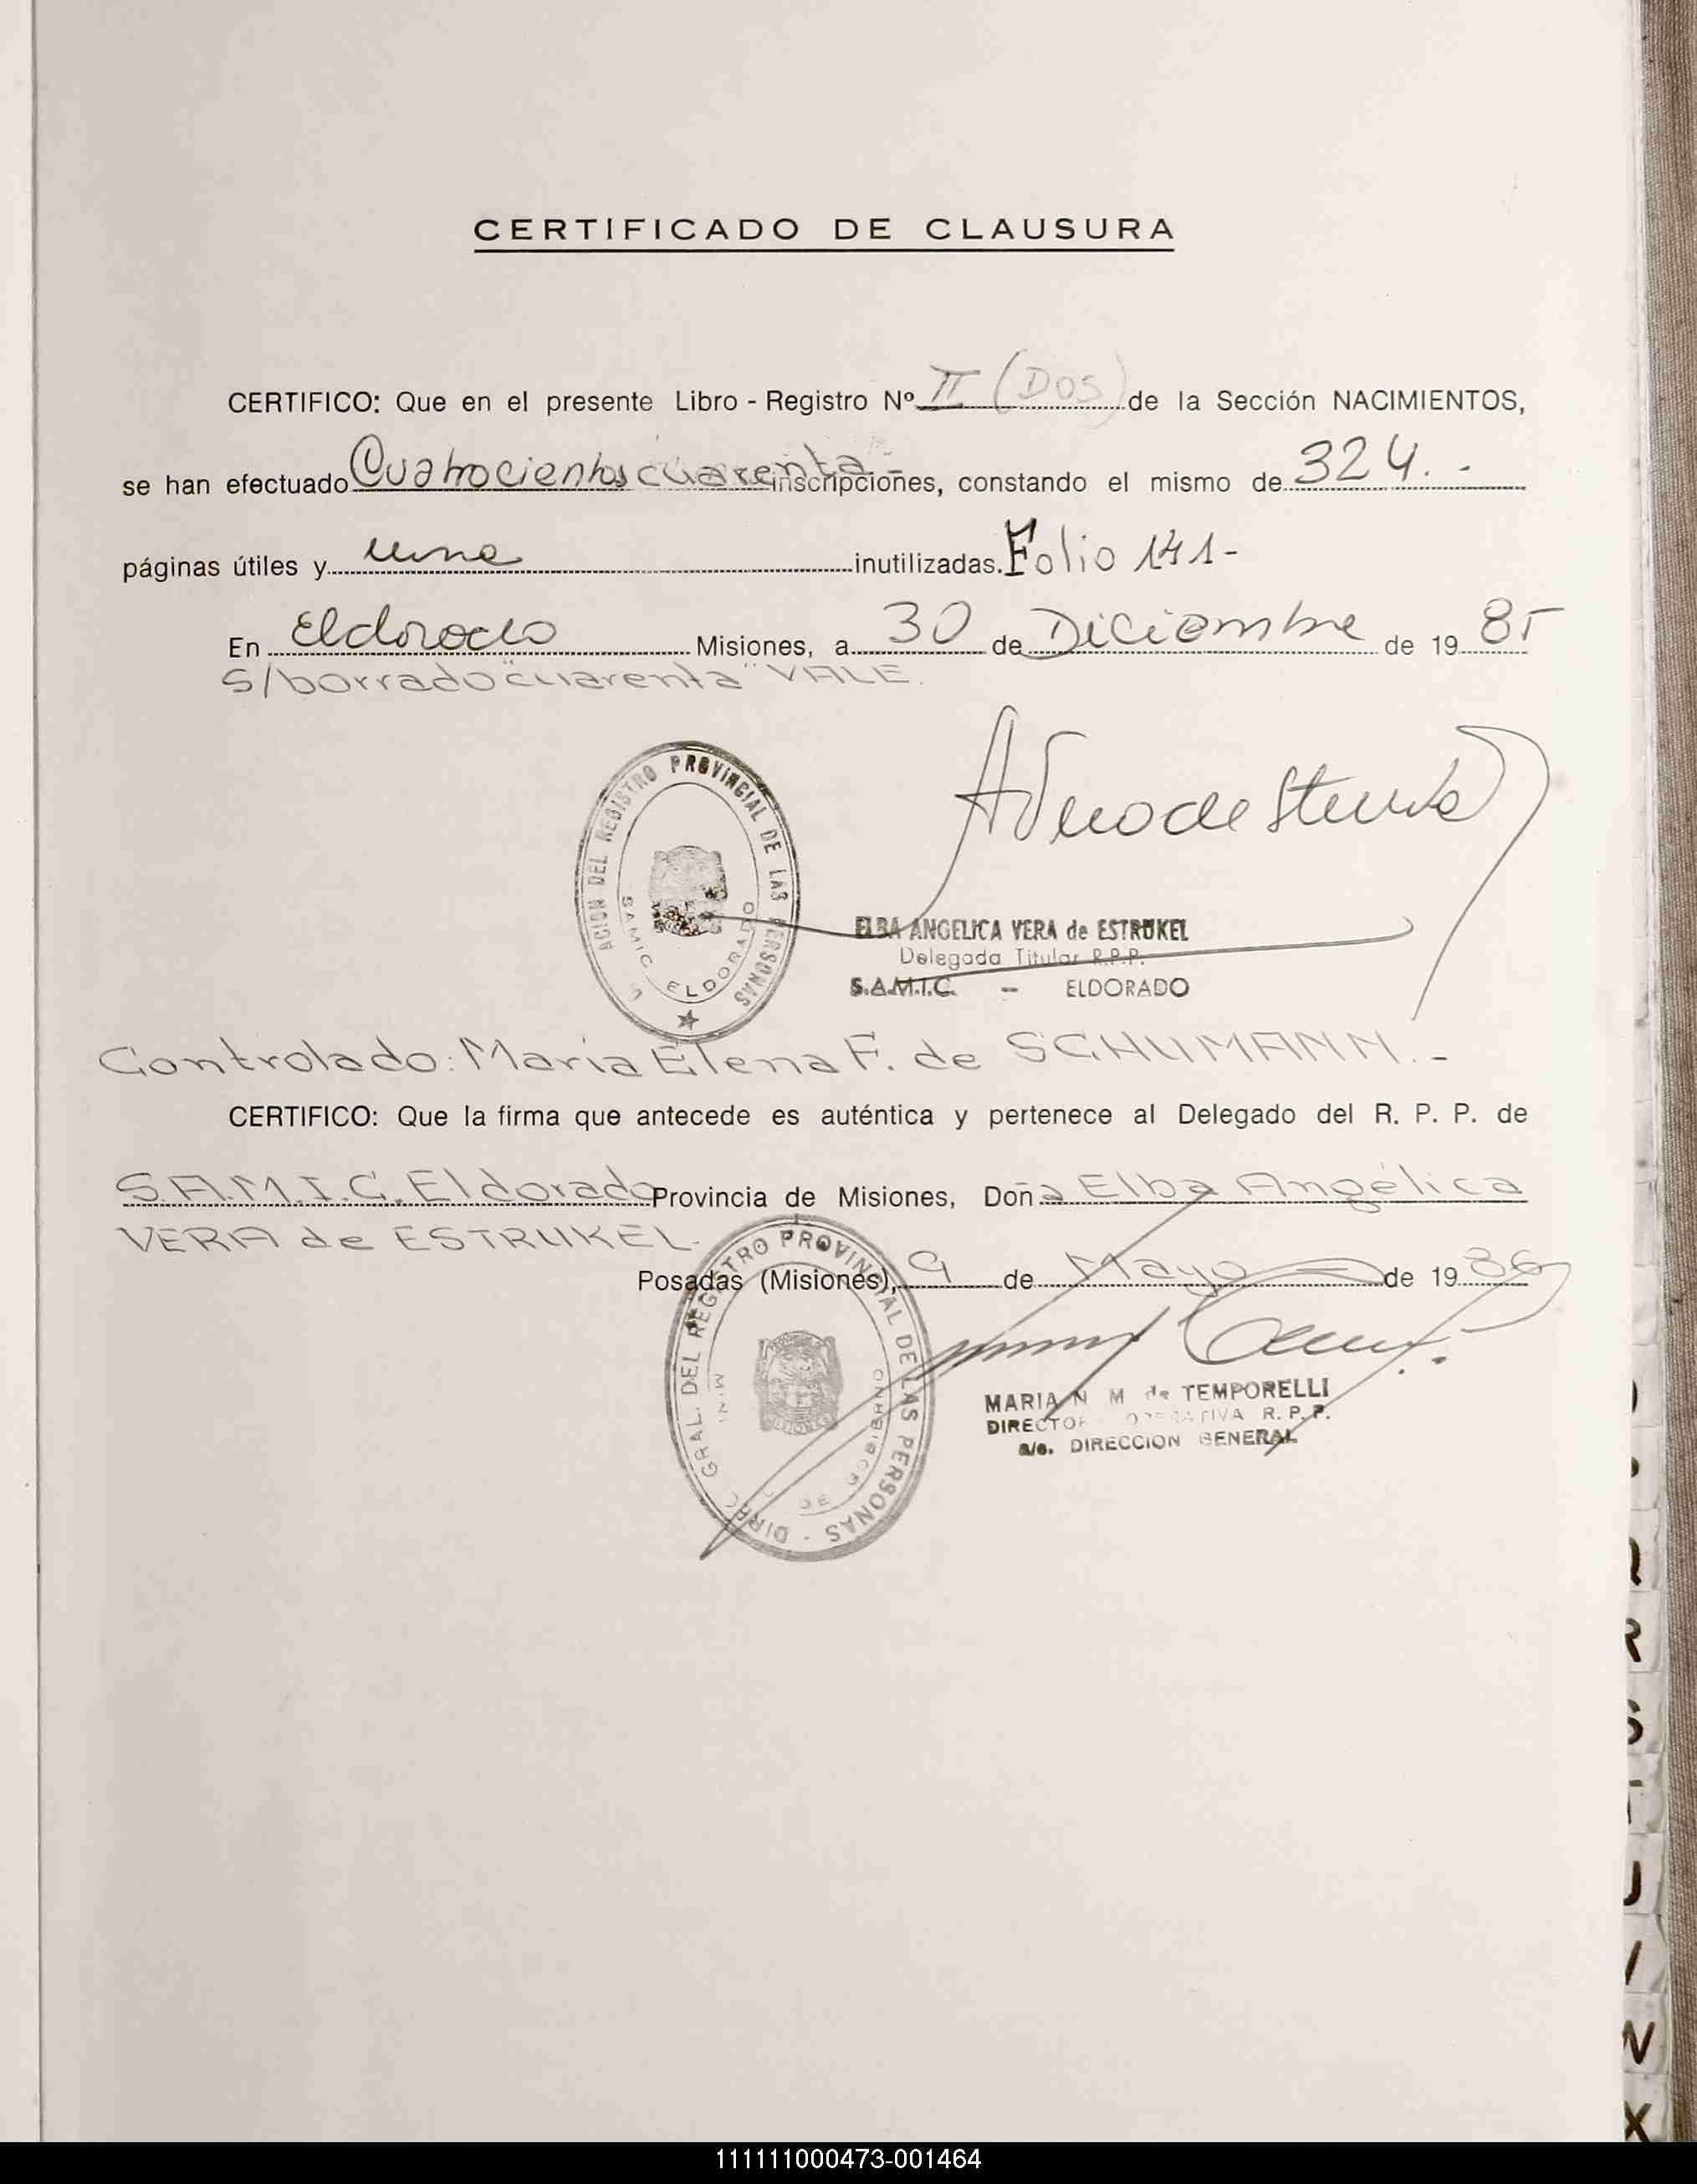 CERTIFICADO DE CLAUSURA
CERTIFICO: Que en el presente Libro - Registro Nº II (DOS) de la Sección NACIMIENTOS,
se han efectuado Cuatrocientos cuarenta - inscripciones, constando el mismo de 324. -
páginas útiles y una inutilizadas. Folio 141-
En Eldorado Misiones, a 30 de Diciembre de 19 85
S/borrado "cuarenta" VALE.
REGISTRO PROVINCIAL DE LAS PERSONAS
SAMIC ELDORADO
ELBA ANGELICA VERA de ESTRUKEL
Delegada Titular R.P.P.
S.A.M.I.C. - ELDORADO
Controlado: María Elena F. de SCHUMANN.-
CERTIFICO: Que la firma que antecede es auténtica y pertenece al Delegado del R. P. P. de
S.A.M.I.C. Eldorado Provincia de Misiones, Doña Elba Angélica
VERA de ESTRUKEL.
Posadas (Misiones), 9 de Mayo de 19 86
DIREC. GRAL. DEL REGISTRO PROVINCIAL DE LAS PERSONAS
MIN. DE GOBIERNO
MARIA N M de TEMPORELLI
DIRECTOR OPERATIVA R. P. P.
a/c. DIRECCION GENERAL
R
S
T
U
W
X
111111000473-001464